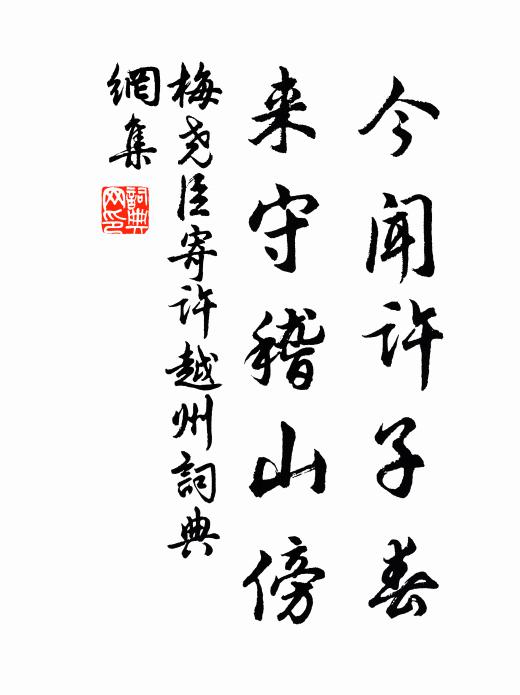 今聞許子春
来守稽山傍
梅尧臣寄许越州詞典
網集
詞典网印